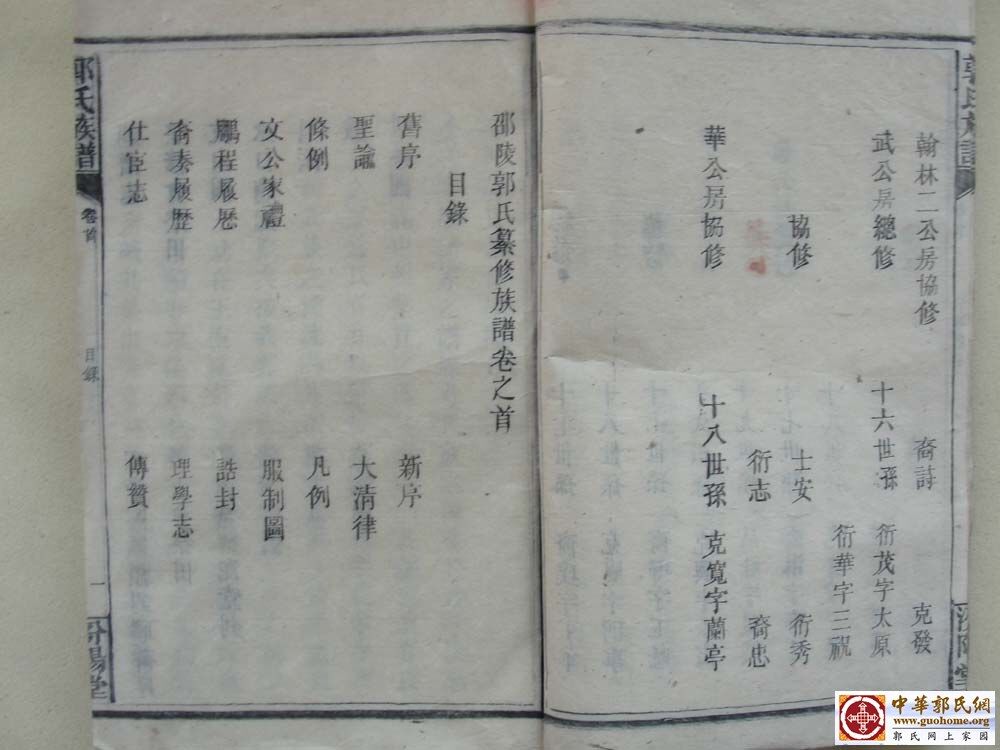 翰林二公房協修 裔詩 克發
武公房總修 十六世孫 衍茂字太原
衍華字三祝
協修 士安 衍秀
衍志 裔忠
華公房協修 十八世孫 克寬字蘭亭
汾陽堂
邵陵郭氏纂修族譜卷之首
目錄
舊序 新序
聖諭 大清律
條例 凡例
文公家禮 服制圖
鵬程履歷 誥封
裔奏履歷 理學志
仕宦志 傳贊
郭氏族譜 卷首 目錄 一 汾陽堂
中華郭氏網
www.guohome.org
郭氏网上家园